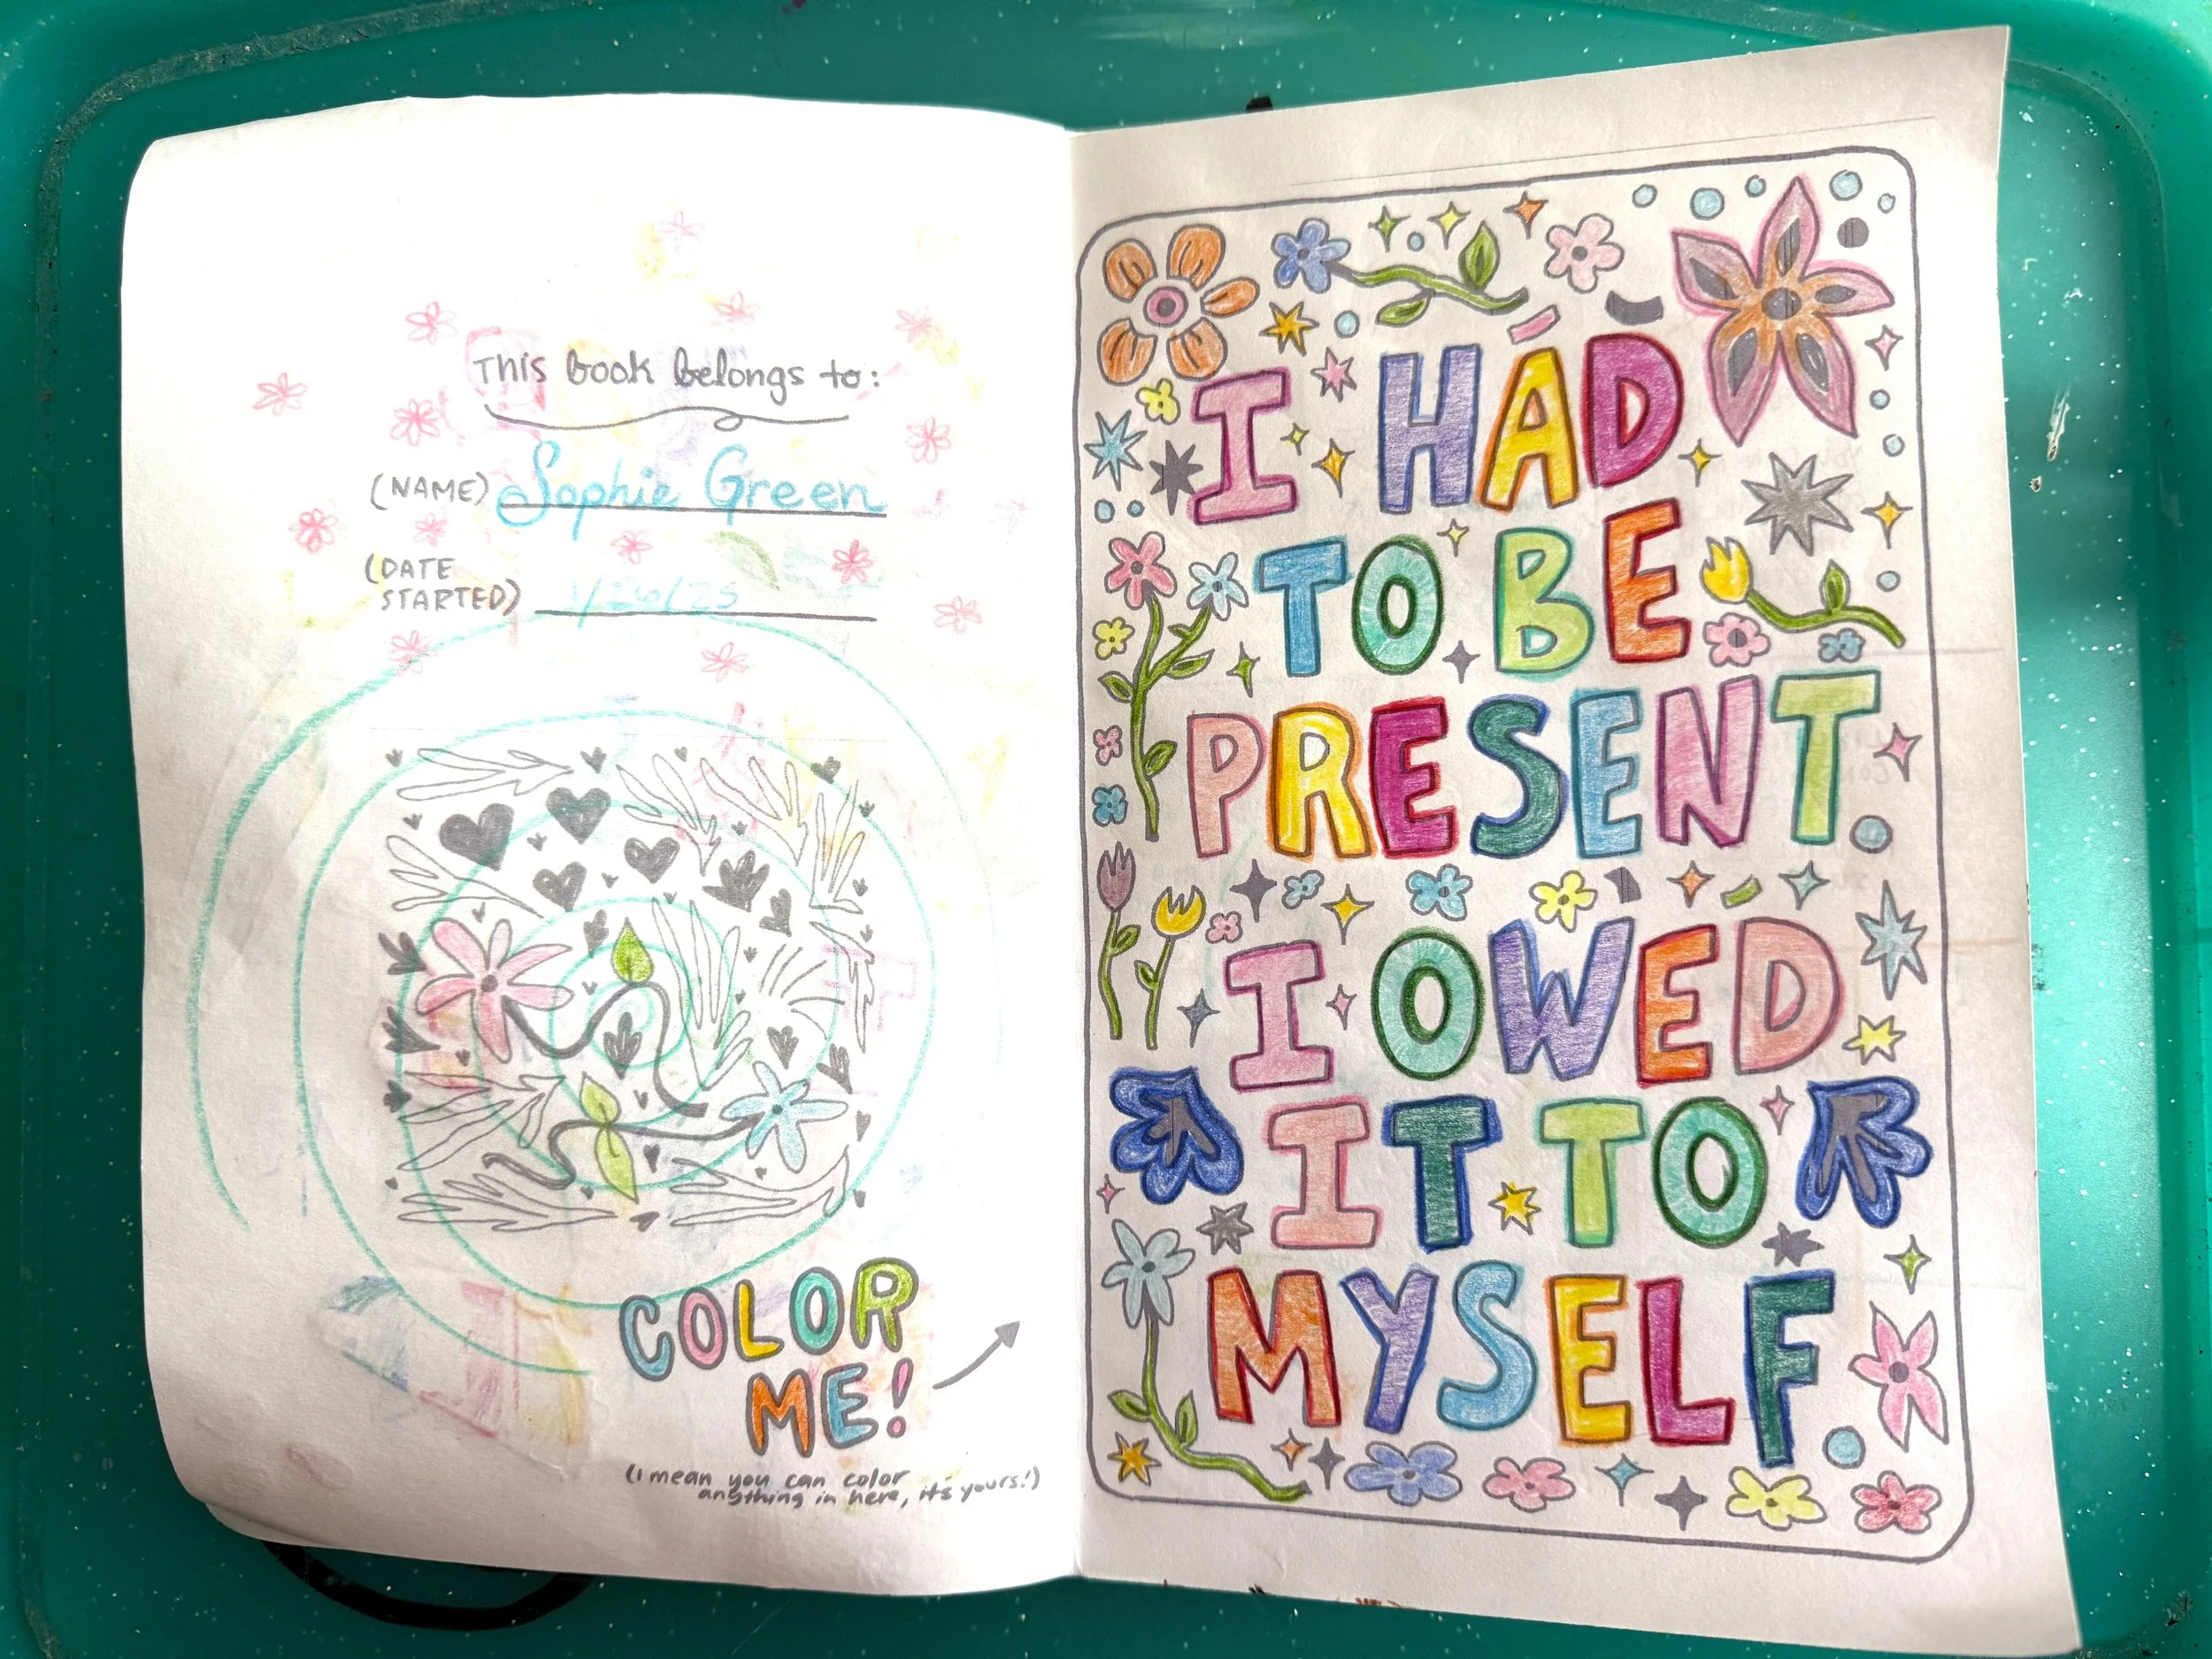 This book belongs to:
(NAME) Sophie Green
(DATE
STARTED) 1/26/25
COLOR
ME!
(I mean you can color
anything in here, it's yours!)
I HAD
TO BE
PRESENT
I OWED
IT TO
MYSELF